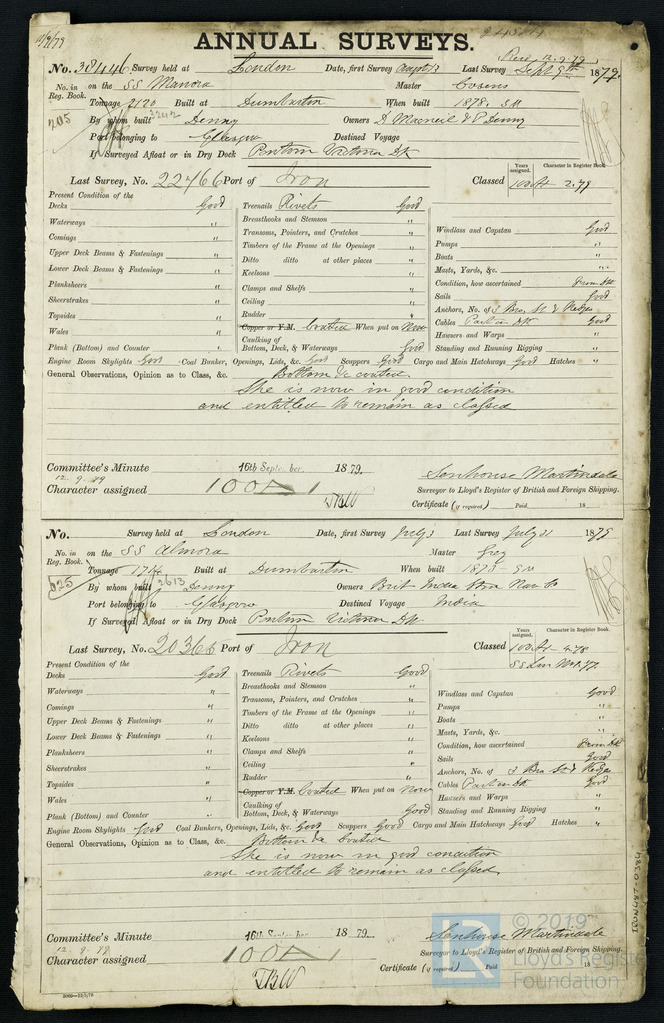 11/9/79
ANNUAL SURVEYS.
Recd 12.9.79
No. 38446 Survey held at London Date, first Survey August 13 Last Survey Sept 9th 1879.
No. in on the SS Manora Master Cosens
Reg. Book.
Tonnage 2120 Built at Dumbarton When built 1878,
205 By whom built Denny Owners D Macneil & P Denny
2242
Port belonging to Glasgow Destined Voyage
If Surveyed Afloat or in Dry Dock Pontoon Victoria Dk
Last Survey, No. 22466 Port of Iron Classed 100A 2.79
Years assigned. Character in Register Book.
Present Condition of the
Decks Good Treenails Rivets Good
Waterways " Breasthooks and Stemson "
Comings " Transoms, Pointers, and Crutches " Windlass and Capstan Good
Upper Deck Beams & Fastenings " Timbers of the Frame at the Openings " Pumps "
Lower Deck Beams & Fastenings " Ditto ditto at other places " Boats "
Planksheers " Keelsons " Masts, Yards, &c. "
Sheerstrakes " Clamps and Shelfs " Condition, how ascertained From Dk
Topsides " Ceiling " Sails Good
Wales " Rudder " Anchors, No. of 3 Bors St & Kedges
Plank (Bottom) and Counter " Copper or Y.M. Coated When put on Now Cables Part in Dk Good
Caulking of Hawsers and Warps "
Bottom, Deck, & Waterways Good Standing and Running Rigging "
Engine Room Skylights Good Coal Bunker, Openings, Lids, &c. Good Scuppers Good Cargo and Main Hatchways Good Hatches "
General Observations, Opinion as to Class, &c. Bottom &c coated.
She is now in good condition
and entitled to remain as classed
Committee's Minute 16th September. 1879.
12.9.79
Character assigned 100A1
Senhouse Martindale
Surveyor to Lloyd's Register of British and Foreign Shipping.
Certificate (if required) Paid 18
No. Survey held at London Date, first Survey July 3 Last Survey July 21 1879
No. in on the SS Almora Master Grey
Reg. Book.
Tonnage 1714 Built at Dumbarton When built
525 By whom built Denny Owners Brit India Stm Nav Co
2613
Port belonging to Glasgow Destined Voyage India
If Surveyed Afloat or in Dry Dock Pontoon Victoria Dk
Last Survey, No. 20366 Port of Iron Classed 100A 4.78
Years assigned. Character in Register Book.
Present Condition of the
Decks Good Treenails Rivets Good
Waterways " Breasthooks and Stemson "
Comings " Transoms, Pointers, and Crutches " Windlass and Capstan Good
Upper Deck Beams & Fastenings " Timbers of the Frame at the Openings " Pumps "
Lower Deck Beams & Fastenings " Ditto ditto at other places " Boats "
Planksheers " Keelsons " Masts, Yards, &c. "
Sheerstrakes " Clamps and Shelfs " Condition, how ascertained From Dk
Topsides " Ceiling " Sails Good
Wales " Rudder " Anchors, No. of 3 Bra St & Kedge
Plank (Bottom) and Counter " Copper or Y.M. Coated When put on Now Cables Part in Dk Good
Caulking of Hawsers and Warps "
Bottom, Deck, & Waterways Good Standing and Running Rigging "
Engine Room Skylights Good Coal Bunkers, Openings, Lids, &c. Good Scuppers Good Cargo and Main Hatchways Good Hatches "
General Observations, Opinion as to Class, &c. Bottom &c Coated
She is now in good condition
and entitled to remain as classed
Committee's Minute 16th September 1879.
12.9.79
Character assigned 100A1
Senhouse Martindale
Surveyor to Lloyd's Register of British and Foreign Shipping.
Certificate (if required) Paid 18
© 2019
Lloyd's Register
Foundation